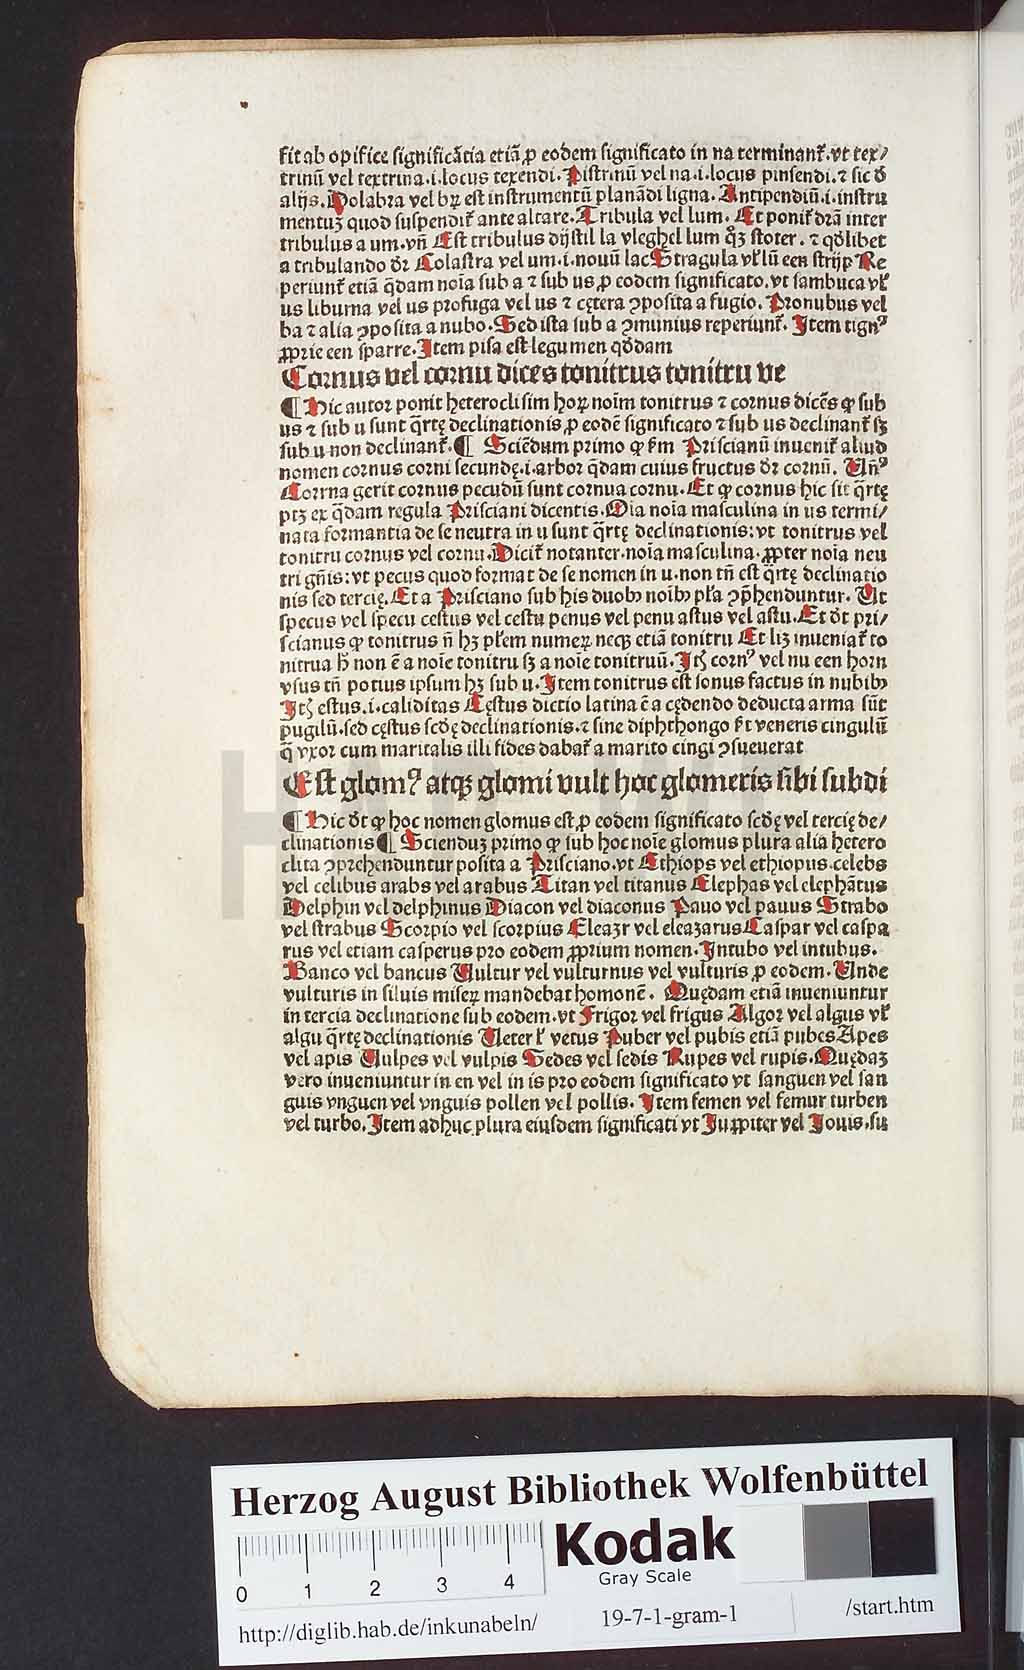 fit ab opifice significãtia etiã ꝑ eodem significato in na terminant᷑. vt tex/
trinũ vel textrina .i. locus texendi. Pistrinũ vel na .i. locus pinsendi. ⁊ sic ð
alijs. Dolabra vel bꝝ est instrumentũ planãdi ligna. Antipendiũ .i. instru
mentuʒ quod suspendit᷑ ante altare. Tribula vel lum. Et ponit᷑ dr̃a inter
tribulus a um. vñ Est tribulus dijstil la vleghel lum qʒ stoter. ⁊ qðlibet
a tribulando ðr Colastra vel um .i. nouũ lac Stragula vl̕ lũ een strijp Re
periunt᷑ etiã q̃dam noĩa sub a ⁊ sub us ꝑ eodem significato. vt sambuca vl̕
us liburna vel us profuga vel us ⁊ cętera ↄposita a fugio. Pronubus vel
ba ⁊ alia ↄposita a nubo. Sed ista sub a ↄmunius reperiunt᷑. Item tignꝰ
ꝓprie een sparre. Item pisa est legumen qðdam
Cornus vel cornu dices tonitrus tonitru ve
¶ Hic autor ponit heteroclisim hoꝝ noĩm tonitrus ⁊ cornus dicẽs ꝙ sub
us ⁊ sub u sunt q̃rtę declinationis ꝑ eodẽ significato ⁊ sub us declinant᷑ sʒ
sub u non declinant᷑. ¶ Sciẽdum primo ꝙ ẜm Priscianũ inuenit᷑ aliud
nomen cornus corni secundę .i. arbor q̃dam cuius fructus ðr cornũ. Uñꝰ
Corrna gerit cornus pecudũ sunt cornua cornu. Et ꝙ cornus hic sit q̃rtę
ptʒ ex q̃dam regula Prisciani dicentis. Oĩa noĩa masculina in us termi/
nata formantia de se neutra in u sunt q̃rtę declinationis: vt tonitrus vel
tonitru cornus vel cornu. Dicit᷑ notanter. noĩa masculina. ꝓpter noĩa neu
tri gñis: vt pecus quod format de se nomen in u. non tñ est q̃rtę declinatio
nis sed tercię. Et a Prisciano sub his duobꝫ noĩbꝫ pl̕a ↄp̃henduntur. Ut
specus vel specu cestus vel cestu penus vel penu astus vel astu. Et ðt pri/
scianus ꝙ tonitrus ñ hʒ pl̕em numeꝝ necqꝫ etiã tonitru Et liʒ inueniat᷑ to
nitrua h̃ non ẽ a noĩe tonitru sʒ a noĩe tonitruũ. Itꝫ cornꝰ vel nu een horn
vsus tñ potius ipsum hʒ sub u. Item tonitrus est sonus factus in nubibꝫ
Itꝫ estus .i. caliditas Cęstus dictio latina ẽ a cędendo deducta arma sũt
pugilũ. sed cęstus scðę declinationis. ⁊ sine diphthongo ẜt veneris cingulũ
q̃ vxor cum maritalis illi fides dabat᷑ a marito cingi ↄsueuerat
Est glomꝰ atqꝫ glomi vult hoc glomeris s̃bi subdi
¶ Hic ðt ꝙ hoc nomen glomus est. ꝑ eodem significato scðę vel tercię de/
clinationis ¶ Sciendum primo ꝙ sub hoc noĩe glomus plura alia hetero
clita ↄprehenduntur posita a Prisciano. vt Ethiops vel ethiopus. celebs
vel celibus arabs vel arabus Titan vel titanus Elephas vel elephãtus
Delphin vel delphinus Diacon vel diaconus Pauo vel pauus Strabo
vel strabus Scorpio vel scorpius Eleaʒr vel eleaʒarus Caspar vel caspa
rus vel etiam casperus pro eodem ꝓprium nomen. Intubo vel intubus.
Banco vel bancus Uultur vel vulturnus vel vulturis ꝑ eodem. Unde
vulturis in siluis miseꝝ mandebat homonẽ. Quędam etiã inueniuntur
in tercia declinatione sub eodem. vt Frigor vel frigus Algor vel algus vl̕
algu q̃rtę declinationis Ueter l̕ vetus Puber vel pubis etiã pubes Apes
vel apis Uulpes vel vulpis Sedes vel sedis Rupes vel rupis. Quędaʒ
vero inueniuntur in en vel in is pro eodem significato vt sanguen vel san
guis vnguen vel vnguis pollen vel pollis. Item femen vel femur turben
vel turbo. Item adhuc plura eiusdem significati vt Iuppiter vel Iouis. su
Herzog August Bibliothek Wolfenbüttel
Kodak
Gray Scale
0 1 2 3 4
http://diglib.hab.de/inkunabeln/ 19-7-1-gram-1 /start.htm